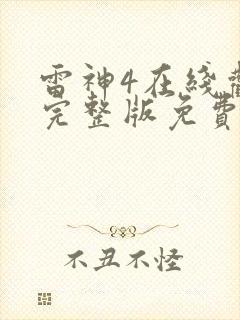 雷神4在线
完整版免費
不丑不怪